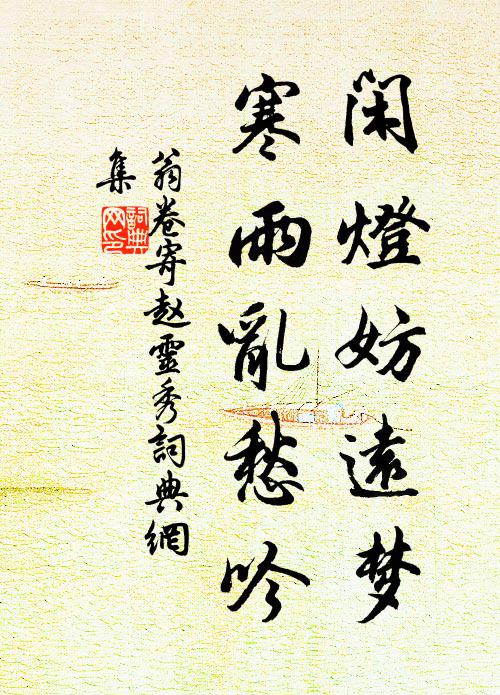 闲燈妨遠梦
寒雨亂愁吟
翁卷寄赵靈秀詞典網
集
詞典网印